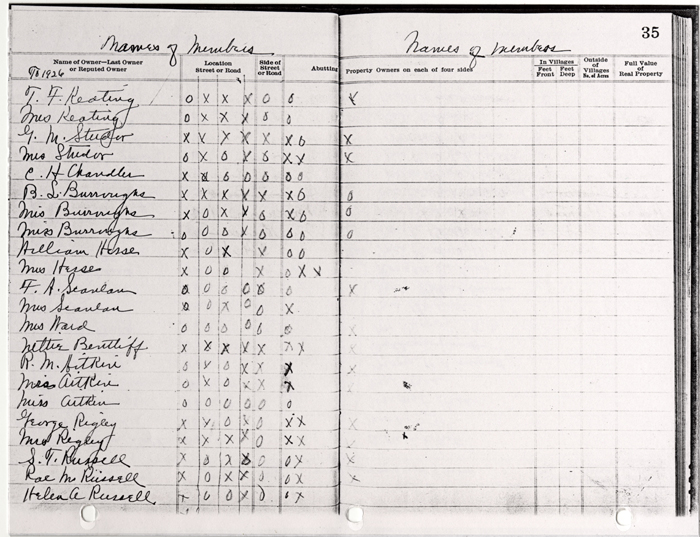 35
Names of Members
Names of members
Name of Owner—Last Owner
or Reputed Owner
Location
Street or Road
Side of
Street
or Road
Abutting
Property Owners on each of four sides
In Villages
Feet
Front
Feet
Deep
Outside
of
Villages
No. of Acres
Full Value
of
Real Property
1926
T. F. Keating o x x x o o x
Mrs Keating o x x x o o
G. M. Studor x x x x x x o x
Mrs Studor o x o x o x x x
C. H. Chandler x x o o o o o
B. L. Burroughs x x x x x x o o
Mrs Burroughs x o x x o x o o
Miss Burroughs o o o x o o o o
William Hesse x o x x o o
Mrs Hesse x o o x o x x
F. A. Scanlan o o o o o o x
Mrs Scanlan o o x o o x
Mrs Ward o o o o o o
Nettie Bentliff x x x x x x x x
R. M. Aitkin o x o x x x x
Mrs Aitkin o x o x x x
Miss Aitkin o o o o o o
George Rigley x x o x o x x x
Mrs Regley x x x x o x x
S. T. Russell x o x x o o x x
Rae M Russell x o x x o o x x
Helen A Russell x o o x o o x